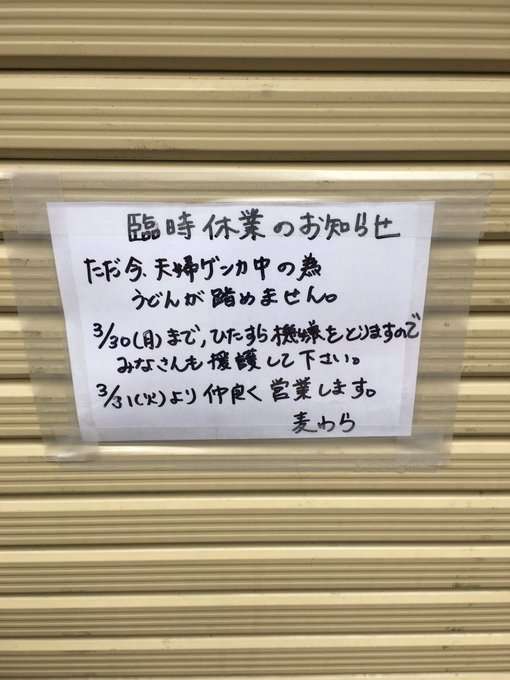 臨時休業のお知らせ
ただ今、夫婦ゲンカ中の為
うどんが踏めません。
3/30(月)まで、ひたすら機嫌をとりますので
みなさんも援護して下さい。
3/31(火)より仲良く営業します。
麦わら